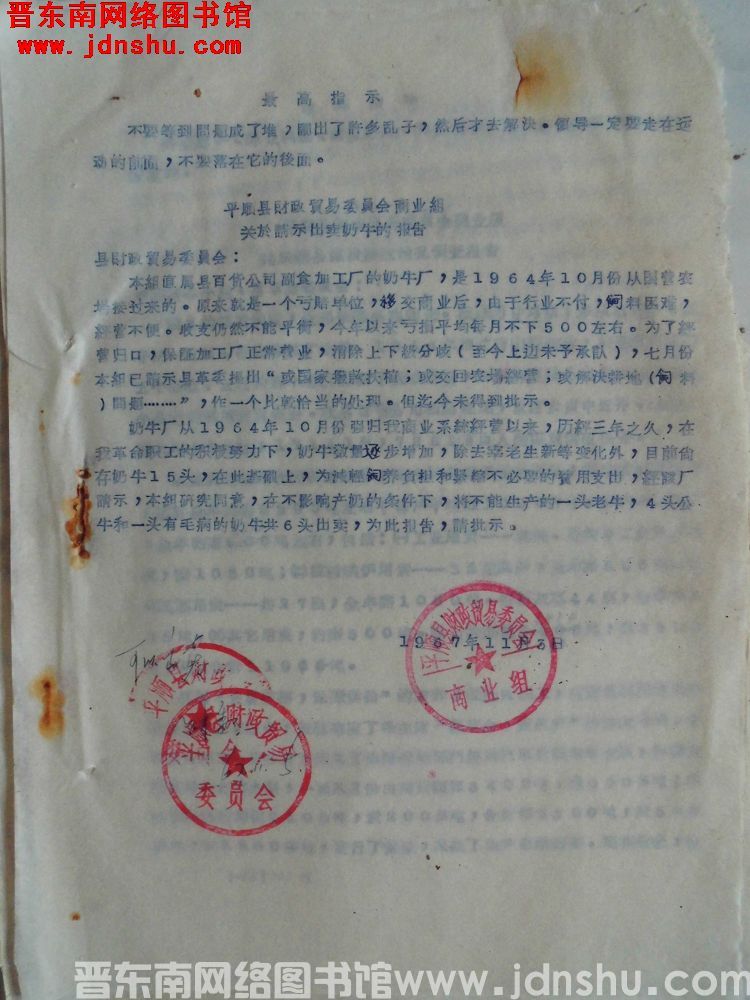 晋东南网络图书馆
www.jdnshu.com
最高指示
不要等到問題成了堆，鬧出了許多乱子，然后才去解决。領导一定要走在运
动的前面，不要落在它的後面。
平順县財政貿易委員会商业組
关於請示出卖奶牛的报告
县財政貿易委員会：
本組直属县百貨公司副食加工厂的奶牛厂，是1964年10月份从国营农
場接过来的。原來就是一个亏賠单位，移交商业后，由于行业不付，飼料困难，
經营不便。收支仍然不能平衡，今年以来亏損平均每月不下500左右。为了經
营归口，保証加工厂正常营业，消除上下級分歧（至今上边未予承認），七月份
本組已請示县革委提出“或国家报款扶植；或交回农場經营；或解决耕地（飼料
）問題………”，作一个比較恰当的处理。但迄今未得到批示。
奶牛厂从1964年10月份划归我商业系統經营以来，历經三年之久，在
我革命职工的积极努力下，奶牛数量逐步增加，除去卖老生新等变化外，目前尙
存奶牛15头，在此基础上，为減輕飼养負担和緊縮不必要的費用支出，經該厂
請示，本組研究同意，在不影响产奶的条件下，将不能生产的一头老牛，4头公
牛和一头有毛病的奶牛共6头出卖，为此报告，請批示。
1967年11月3日
平顺县财政贸易委员会
商业组
平顺县财政
平顺县财政贸易
委员会
晋东南网络图书馆www.jdnshu.com